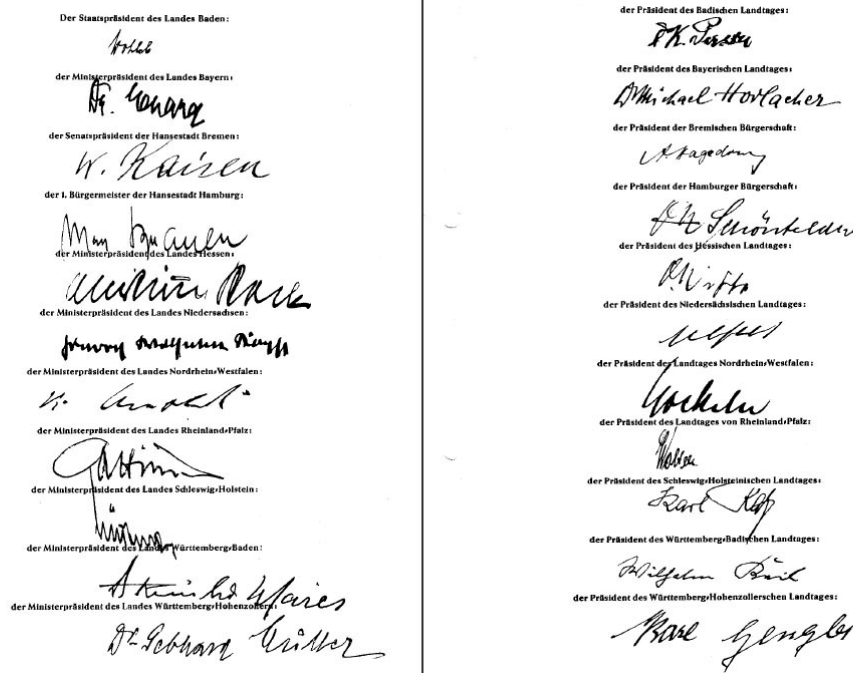 Der Staatspräsident des Landes Baden:
Wohleb
der Ministerpräsident des Landes Bayern:
Dr. Ehard
der Senatspräsident der Hansestadt Bremen:
W. Kaisen
der 1. Bürgermeister der Hansestadt Hamburg:
Max Brauer
der Ministerpräsident des Landes Hessen:
Christian Stock
der Ministerpräsident des Landes Niedersachsen:
Hinrich Wilhelm Kopf
der Ministerpräsident des Landes Nordrhein-Westfalen:
K. Arnold
der Ministerpräsident des Landes Rheinland-Pfalz:
Altmeier
der Ministerpräsident des Landes Schleswig-Holstein:
Lüdemann
der Ministerpräsident des Landes Württemberg-Baden:
der Ministerpräsident des Landes Württemberg-Hohenzollern:
Dr. Gebhard Müller
der Präsident des Badischen Landtages:
der Präsident des Bayerischen Landtages:
Dr Michael Horlacher
der Präsident der Bremischen Bürgerschaft:
A. Hagedorn
der Präsident der Hamburger Bürgerschaft:
Schönfelder
der Präsident des Hessischen Landtages:
O. Witte
der Präsident des Niedersächsischen Landtages:
der Präsident des Landtages Nordrhein-Westfalen:
Gockeln
der Präsident des Landtages von Rheinland-Pfalz:
Wolters
der Präsident des Schleswig-Holsteinischen Landtages:
Karl
der Präsident des Württemberg-Badischen Landtages:
Wilhelm Keil
der Präsident des Württemberg-Hohenzollerschen Landtages:
Karl Gengler